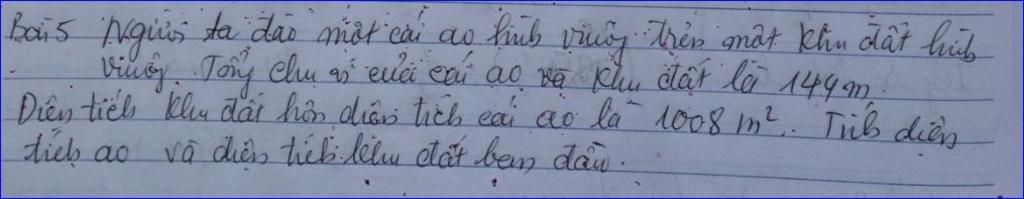 Bài 5 Người ta đào một cái ao hình vuông trên một khu đất hình
vuông. Tổng chu vi của cái ao và khu đất là 144m.
Diện tích khu đất hơn diện tích cái ao là 1008 m². Tính diện
tích ao và diện tích khu đất ban đầu.